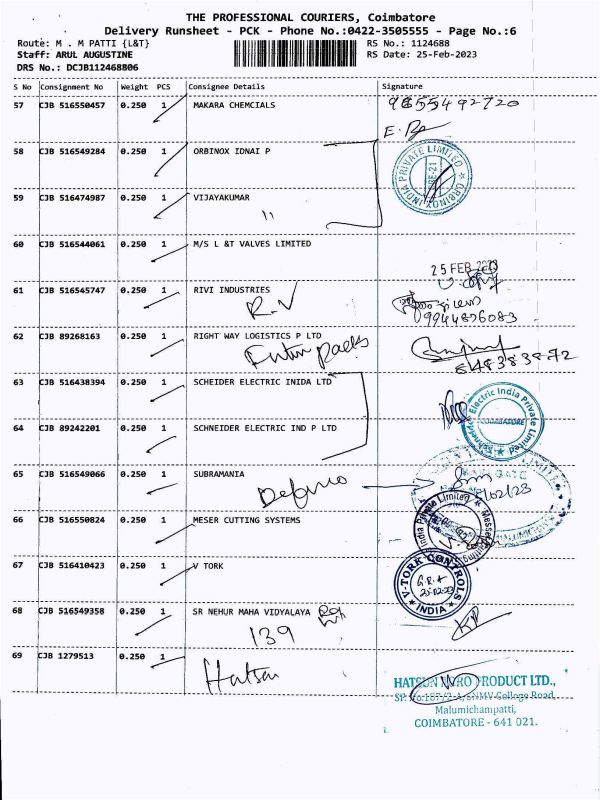 THE PROFESSIONAL COURIERS, Coimbatore
Delivery Runsheet - PCK - Phone No.:0422-3505555 - Page No.:6
Route: M . M PATTI {L&T} RS No.: 1124688
Staff: ARUL AUGUSTINE RS Date: 25-Feb-2023
DRS No.: DCJB112468806
S No Consignment No Weight PCS Consignee Details Signature
57 CJB 516550457 0.250 1 MAKARA CHEMCIALS 9655492720
58 CJB 516549284 0.250 1 ORBINOX IDNAI P
INDIA PRIVATE LIMITED ORBINOX
59 CJB 516474987 0.250 1 VIJAYAKUMAR
"
60 CJB 516544061 0.250 1 M/S L &T VALVES LIMITED
25 FEB 2023
61 CJB 516545747 0.250 1 RIVI INDUSTRIES
R.V 9944826083
62 CJB 89268163 0.250 1 RIGHT WAY LOGISTICS P LTD
63 CJB 516438394 0.250 1 SCHEIDER ELECTRIC INIDA LTD
Schneider Electric India Private Limited
COIMBATORE
64 CJB 89242201 0.250 1 SCHNEIDER ELECTRIC IND P LTD
65 CJB 516549066 0.250 1 SUBRAMANIA
66 CJB 516550824 0.250 1 MESER CUTTING SYSTEMS
India Private Limited
67 CJB 516410423 0.250 1 V TORK
V-TORK CONTROLS
INDIA
68 CJB 516549358 0.250 1 SR NEHUR MAHA VIDYALAYA
139
69 CJB 1279513 0.250 1
Hatsun
HATSUN AGRO PRODUCT LTD.,
SF. No:187/2-A, SNMV College Road,
Malumichampatti,
COIMBATORE - 641 021.